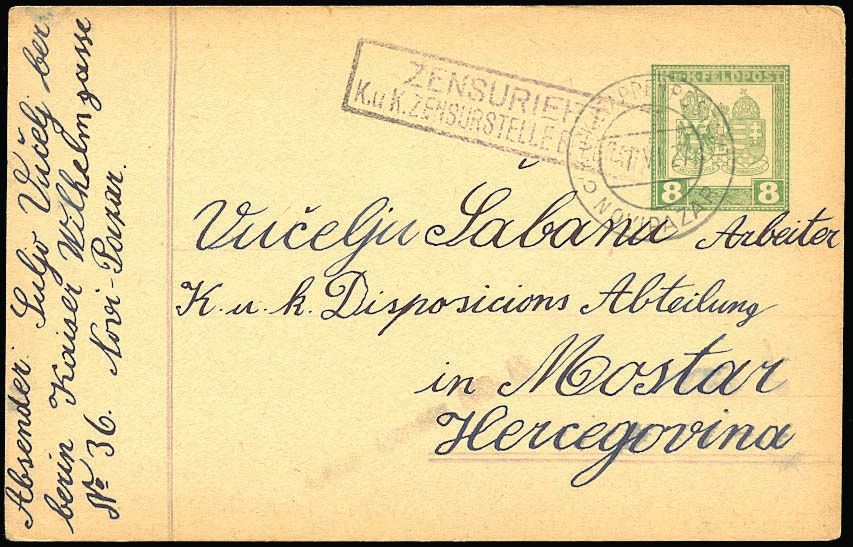 Absender: Suljo Vučelj ber
berin Kaiser Wilhelmgasse
No 36. Novi-Pazar.
ZENSURIER
K.u K. ZENSURSTELLE
K.u.K. FELDPOST
8 8
NOVIPAZAR
Vučelju Šabanu Arbeiter
K. u. k. Disposicions Abteilung
in Mostar
Hercegovina